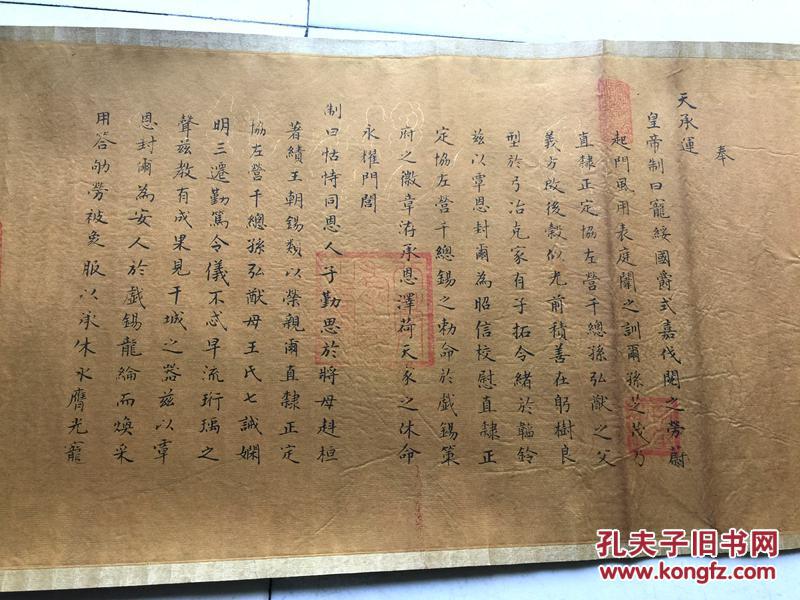 奉
天承運
皇帝制曰寵綏國爵式嘉伐閱之勞蔚
起門風用表庭闈之訓爾孫芝茂乃
直隸正定協左營千總孫弘猷之父
義方啟後穀似光前積善在躬樹良
型於弓冶克家有子拓令緒於韜鈐
茲以覃恩封爾為昭信校尉直隸正
定協左營千總錫之勅命於戲錫策
府之徽章洊承恩澤荷天家之休命
永耀門閭
制曰怙恃同恩人子勤思於將母赳桓
著績王朝錫類以榮親爾直隸正定
協左營千總孫弘猷母王氏七誡嫻
明三遷勤篤令儀不忒早流珩瑀之
聲茲教有成果見干城之器茲以覃
恩封爾為安人於戲錫龍綸而煥采
用答劬勞被象服以承休永膺光寵
孔夫子旧书网
www.kongfz.com